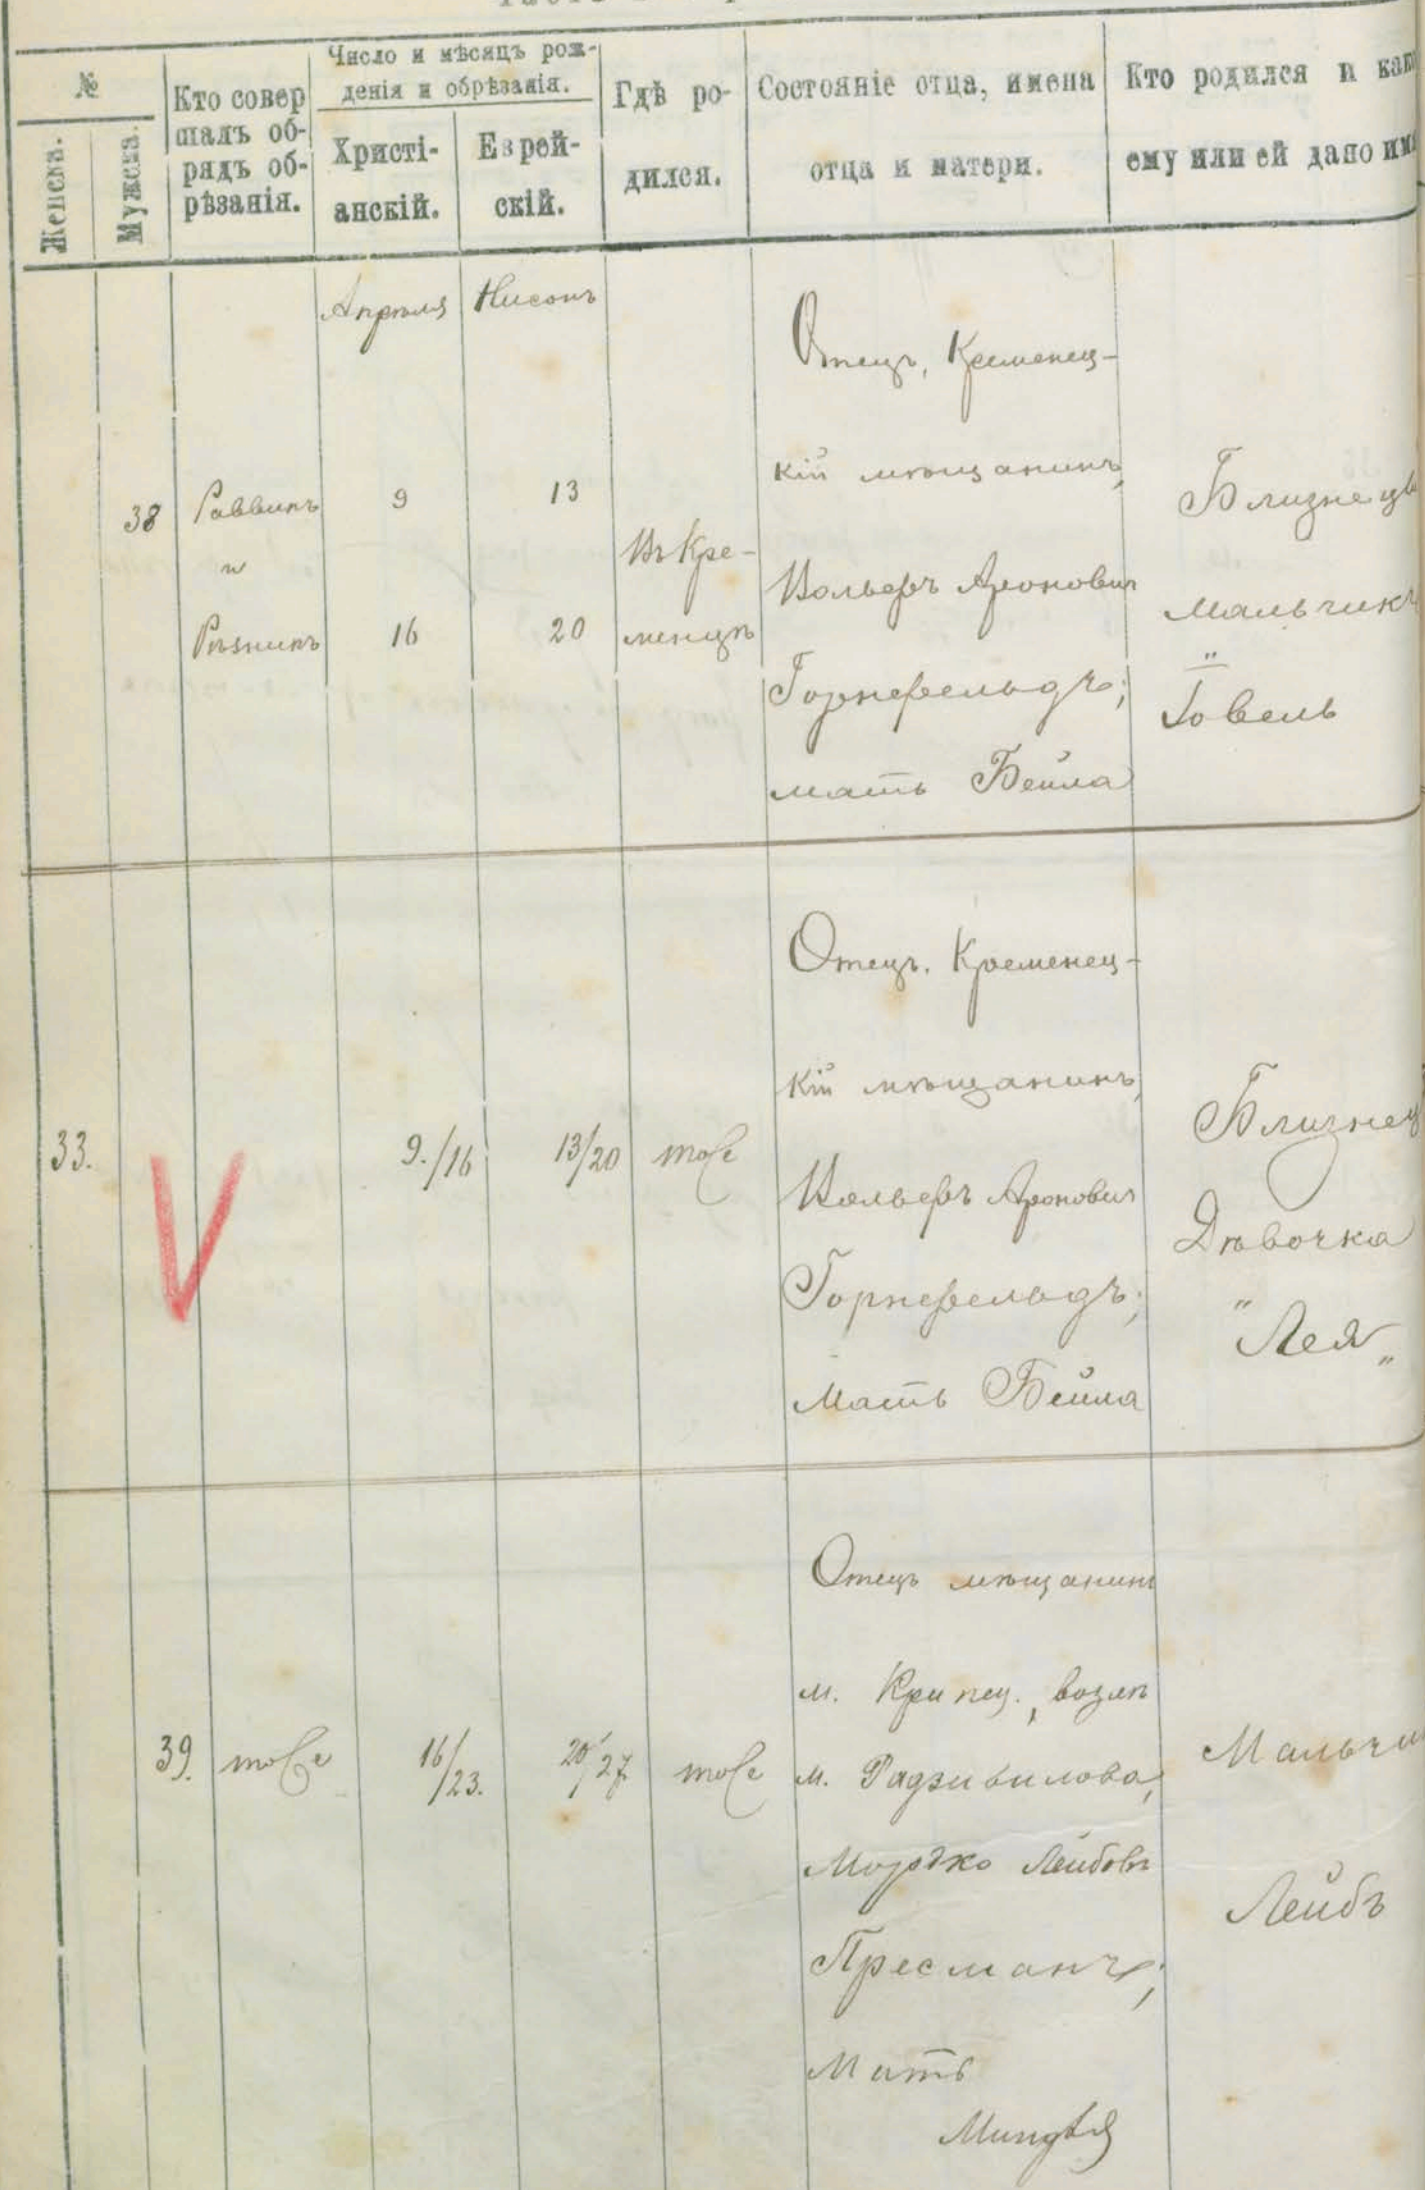 №
Женска.
Мужска.
Кто совер
шалъ об-
рядъ об-
рѣзанія.
Число и мѣсяцъ рож-
денія и обрѣзанія.
Христі-
анскій.
Еврей-
скій.
Гдѣ ро-
дился.
Состояніе отца, имена
отца и матери.
Кто родился и как
ему или ей дано им
Апрѣля
Нисонъ
38
Раввинъ
и
Рѣзникъ
9
16
13
20
Въ Кре-
менцѣ
Отецъ, Кременец-
кій мѣщанинъ,
Вольфъ Аронович
Горнфельдъ;
мать Бейла
Близнецы
мальчикъ
"
Іовель
33.
9./16
13/20
тоже
Отецъ. Кременец-
кій мѣщанинъ,
Вольфъ Аронович
Горнфельдъ;
Мать Бейла
Близнец
Дѣвочка
"Лея"
39.
тоже
16/23.
20/27
тоже
Отецъ мѣщанинъ
м. , возлѣ
м. Радзивилова,
Мордко Лейбовъ
Пресманъ;
Мать
Миндля
Мальчи
Лейбъ